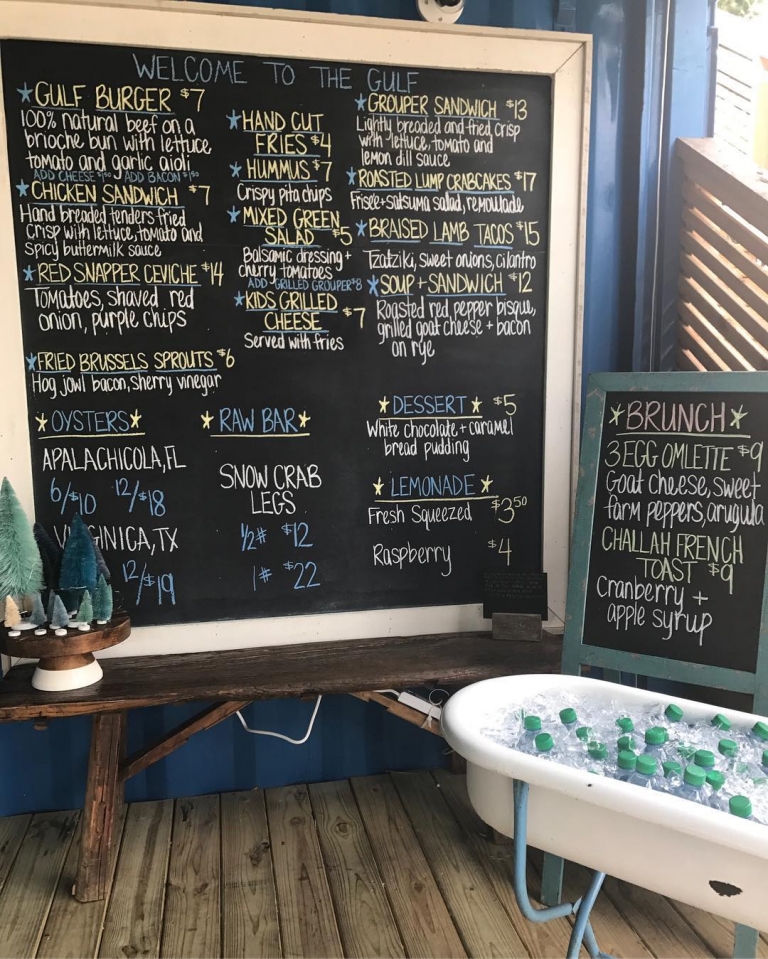 WELCOME TO THE GULF
GULF BURGER $7
100% natural beef on a
brioche bun with lettuce
tomato and garlic aioli
ADD CHEESE $1.50 ADD BACON $1.50
CHICKEN SANDWICH $7
Hand breaded tenders fried
crisp with lettuce, tomato and
spicy buttermilk sauce
RED SNAPPER CEVICHE $14
Tomatoes, shaved red
onion, purple chips
FRIED BRUSSELS SPROUTS $6
Hog jowl bacon, sherry vinegar
HAND CUT
FRIES $4
HUMMUS $7
Crispy pita chips
MIXED GREEN
SALAD $5
Balsamic dressing +
cherry tomatoes
ADD GRILLED GROUPER $8
KIDS GRILLED
CHEESE $7
Served with fries
GROUPER SANDWICH $13
Lightly breaded and fried crisp
with lettuce, tomato and
lemon dill sauce
ROASTED LUMP CRABCAKES $17
Frisee + satsuma salad, remoulade
BRAISED LAMB TACOS $15
Tzatziki, sweet onions, cilantro
SOUP + SANDWICH $12
Roasted red pepper bisque,
grilled goat cheese + bacon
on rye
OYSTERS
APALACHICOLA, FL
6/$10 12/$18
TX
12/$19
RAW BAR
SNOW CRAB
LEGS
1/2# $12
1# $22
DESSERT $5
White chocolate + caramel
bread pudding
LEMONADE
Fresh Squeezed $3.50
Raspberry $4
BRUNCH
3 EGG OMLETTE $9
Goat cheese, sweet
farm peppers, arugula
CHALLAH FRENCH
TOAST $9
Cranberry +
apple syrup